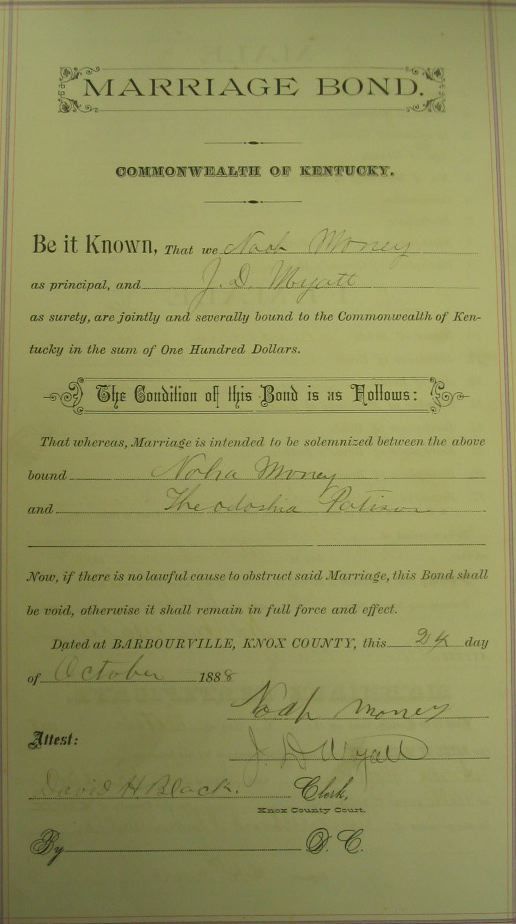 MARRIAGE BOND.
COMMONWEALTH OF KENTUCKY.
Be it Known, That we Noah Money
as principal, and J. D. Wyatt
as surety, are jointly and severally bound to the Commonwealth of Ken-
tucky in the sum of One Hundred Dollars.
The Condition of this Bond is as Follows:
That whereas, Marriage is intended to be solemnized between the above
bound Noha Money
and Theodoshia Patison
Now, if there is no lawful cause to obstruct said Marriage, this Bond shall
be void, otherwise it shall remain in full force and effect.
Dated at BARBOURVILLE, KNOX COUNTY, this 24 day
of October 1888
Noah Money
Attest:
J. D. Wyatt
David H Black. Clerk,
Knox County Court.
By D. C.